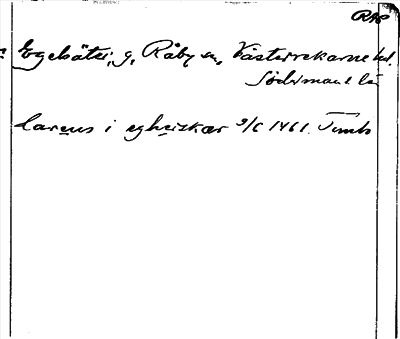 RAP
Egelsäter, g, Råby sn, Västerrekarne hd.
Södermanl. län
lareus i egheiskær 9/6 1461.